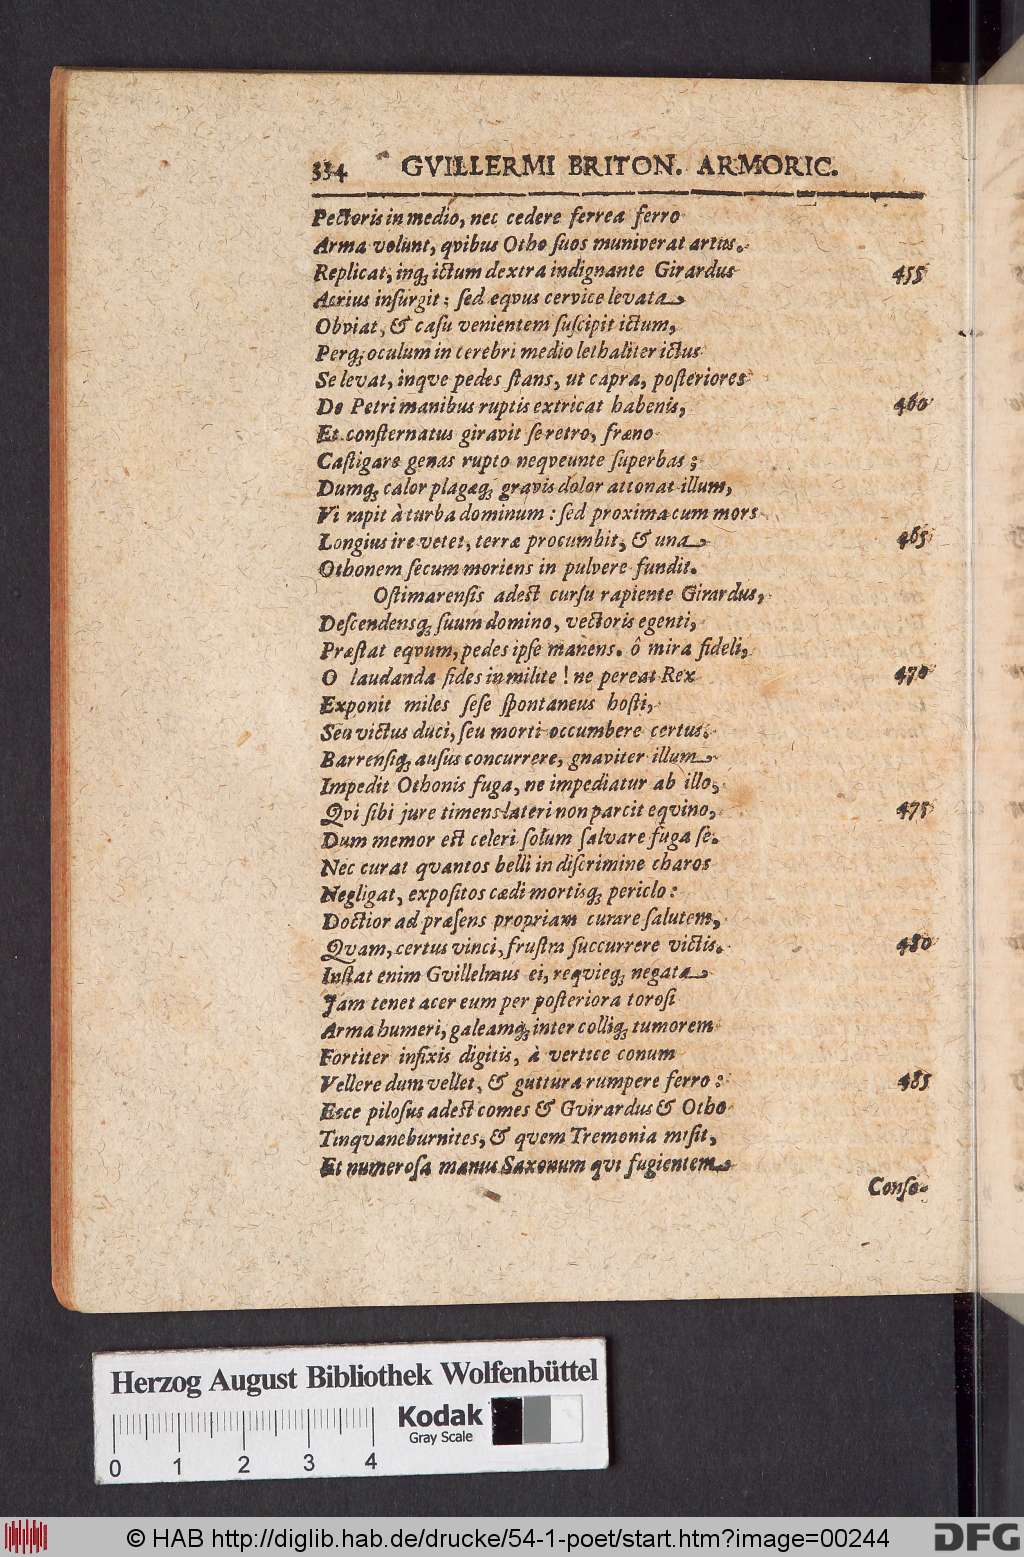 334 GVILLERMI BRITON. ARMORIC.
Pectoris in medio, nec cedere ferrea ferro
Arma volunt, qvibus Otho ſuos muniverat artus.
Replicat, inq; ictum dextra indignante Girardus 455
Acrius inſurgit; ſed eqvus cervice levata
Obviat, & caſu venientem ſuſcipit ictum,
Perq; oculum in cerebri medio lethaliter ictus
Se levat, inqve pedes ſtans, ut capra, poſteriores
De Petri manibus ruptis extricat habenis, 460
Et conſternatus giravit ſe retro, fræno
Caſtigare genas rupto neqveunte ſuperbas;
Dumq; calor plagæq; gravis dolor attonat illum,
Vi rapit à turba dominum: ſed proxima cum mors
Longius ire vetet, terræ procumbit, & una 465
Othonem ſecum moriens in pulvere fundit.
Oſtimarenſis adeſt curſu rapiente Girardus,
Deſcendensq; ſuum domino, vectoris egenti,
Præſtat eqvum, pedes ipſe manens. ô mira fideli,
O laudanda fides in milite! ne pereat Rex 470
Exponit miles ſeſe ſpontaneus hoſti,
Seu victus duci, ſeu morti occumbere certus.
Barrenſiq; auſus concurrere, gnaviter illum
Impedit Othonis fuga, ne impediatur ab illo,
Qvi ſibi jure timens lateri non parcit eqvino, 475
Dum memor eſt celeri ſolum ſalvare fuga ſe.
Nec curat qvantos belli in diſcrimine charos
Negligat, expoſitos cædi mortisq; periclo:
Doctior ad præſens propriam curare ſalutem,
Qvam, certus vinci, fruſtra ſuccurrere victis. 480
Inſtat enim Gvillelmus ei, reqvieq; negata
Jam tenet acer eum per poſteriora toroſi
Arma humeri, galeamq; inter colliq; tumorem
Fortiter infixis digitis, à vertice conum
Vellere dum vellet, & guttura rumpere ferro: 485
Ecce piloſus adeſt comes & Gvirardus & Otho
Tinqvaneburnites, & qvem Tremonia miſit,
Et numeroſa manus Saxonum qvi fugientem
Conſo-
Herzog August Bibliothek Wolfenbüttel
Kodak
Gray Scale
0 1 2 3 4
© HAB http://diglib.hab.de/drucke/54-1-poet/start.htm?image=00244
DFG